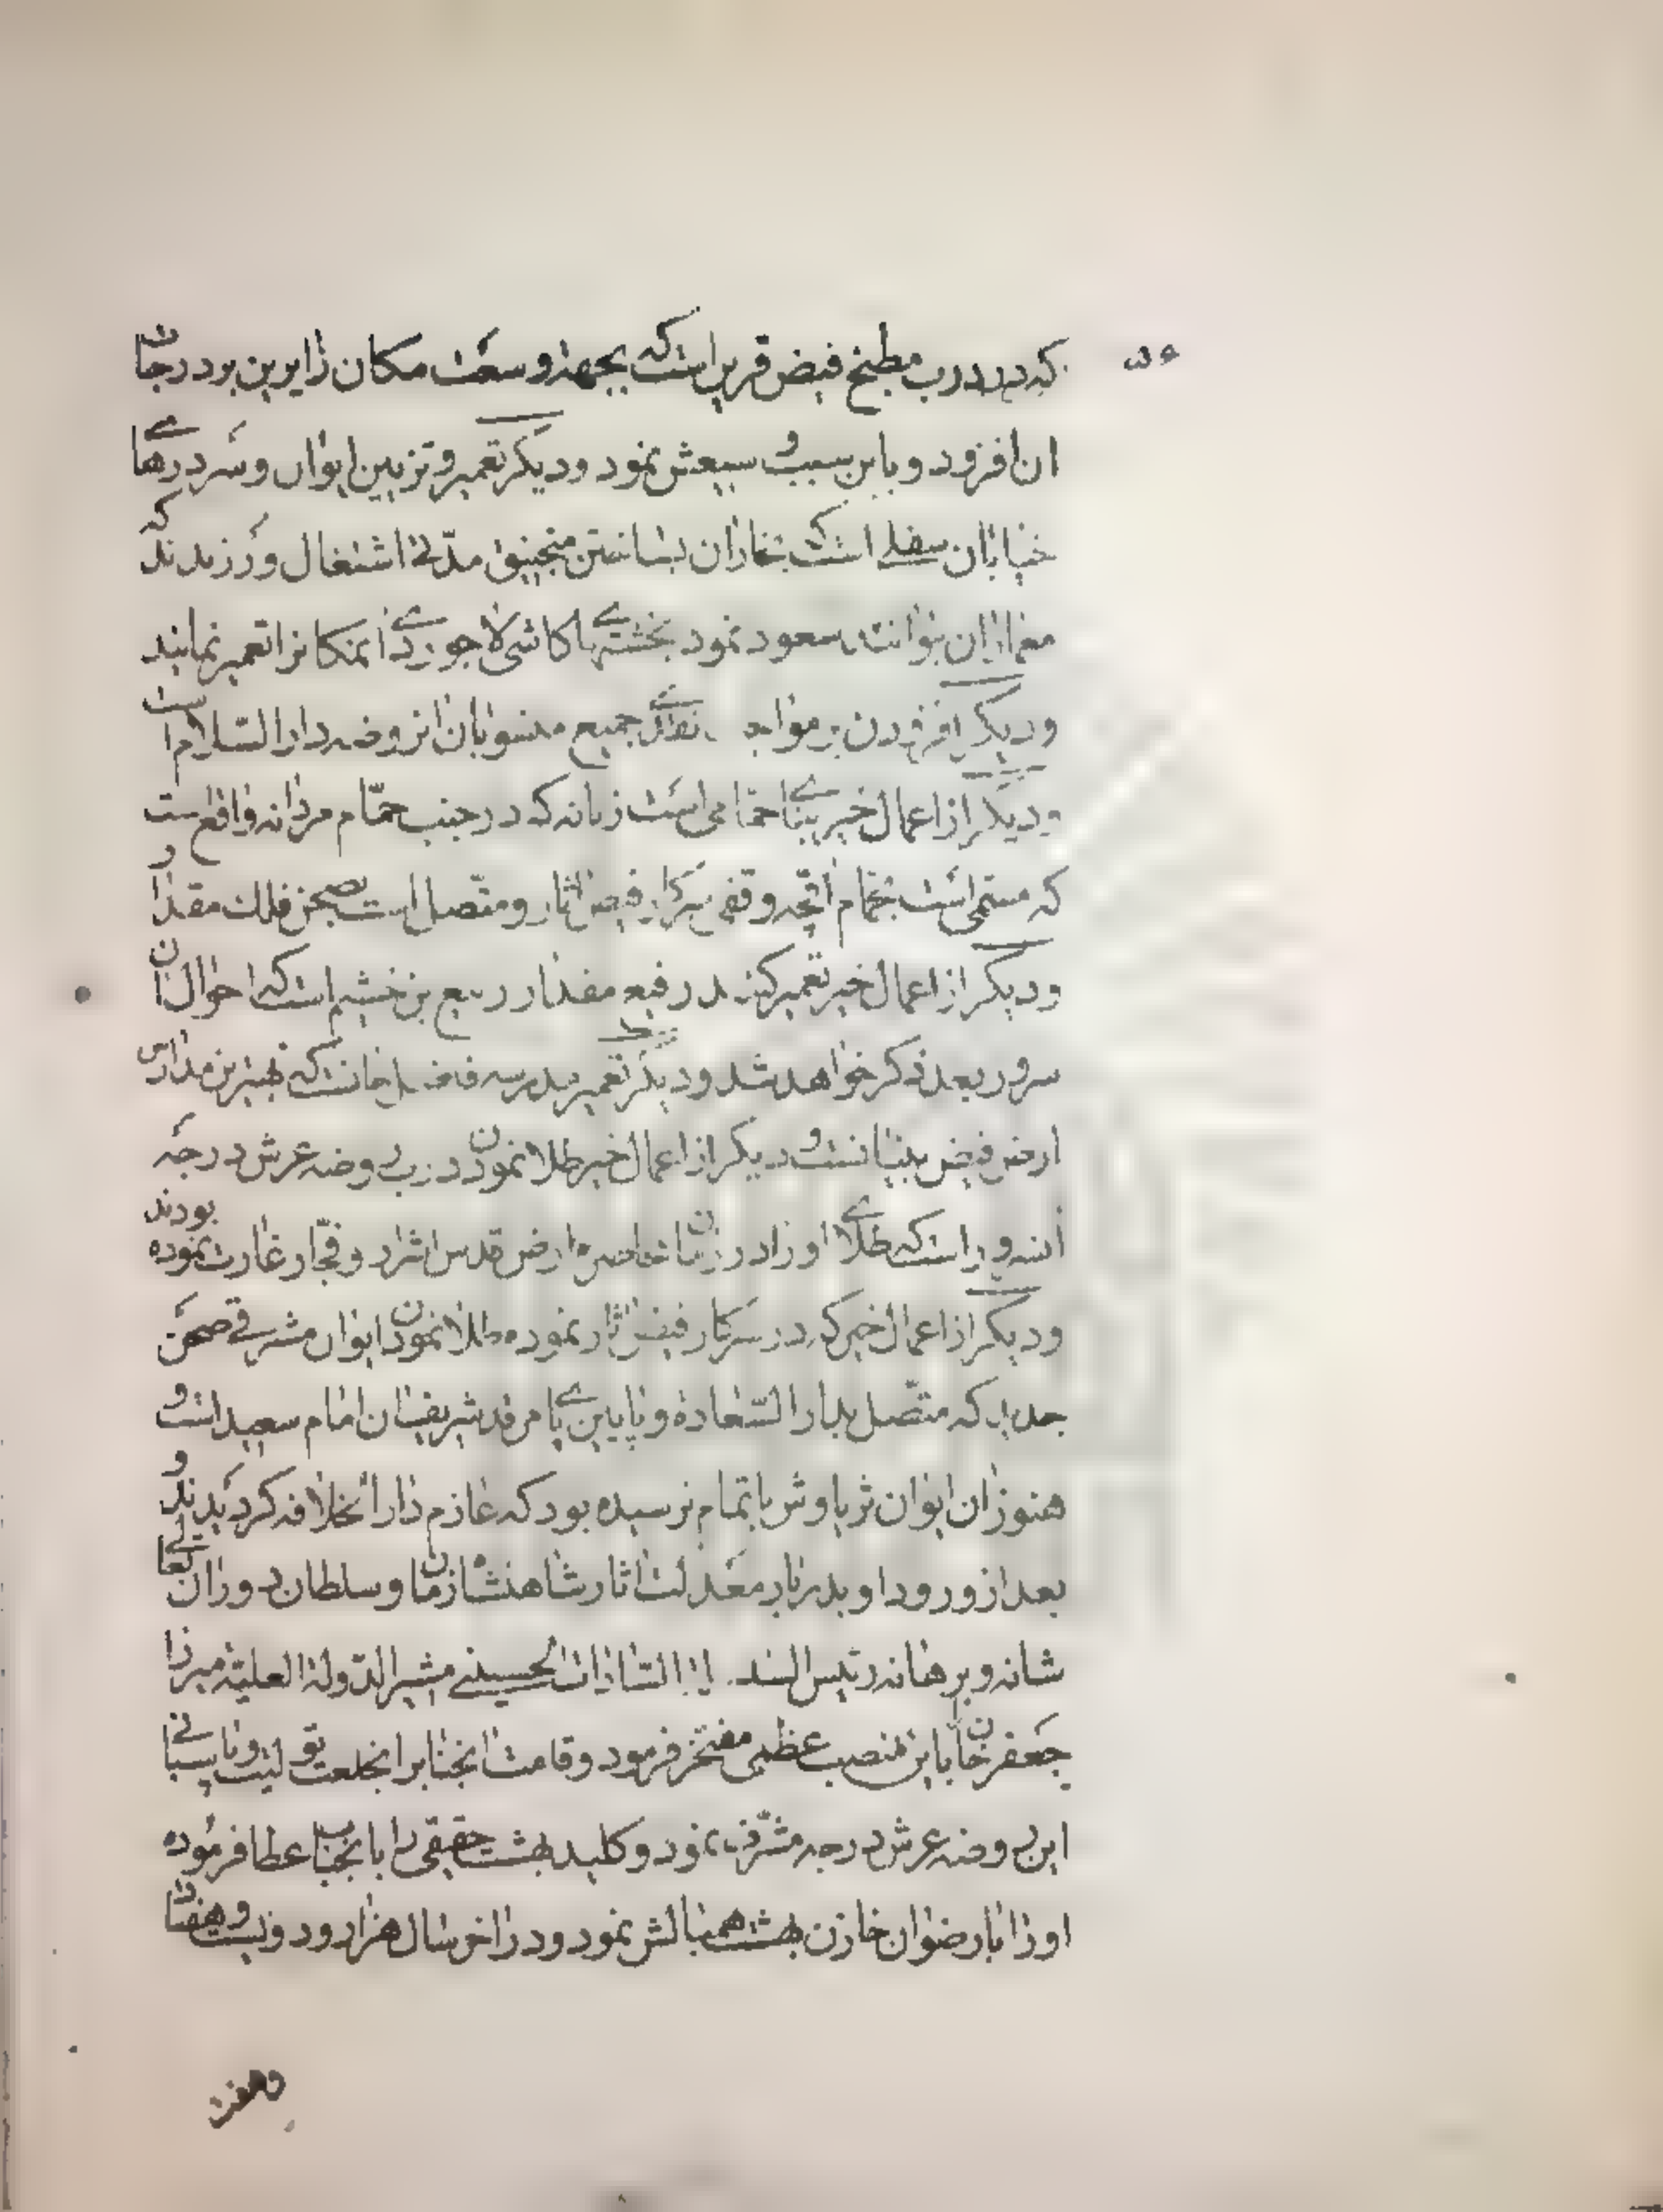 که در درب مطبخ فیض قرین است که بجهة وسعت مکان زایرین بر درجات
ان افزود و باین سبب وسیعش نمود و دیگر تعمیر و تزیین ایوان و سردرهای
خیابان سفلی است که نجاران بساختن منجنیق مدتی اشتغال ورزیدند که
معماران بتوانند صعود نمود بخشتهای کاشی لاجوردی انمکانرا تعمیر نمایند
و دیگر افزودن بر مواجب جمیع منسوبان انروضه دار السلام است
و دیگر از اعمال خیر بنای حمامی است زنانه که در جنب حمام مردانه واقع است
که مسمی است بحمام اقچه وقفی سرکار فیض اثار و متصل است بصحن فلک مقدار
و دیگر از اعمال خیر تعمیر رفیع مقدار ربیع بن خشیم است که احوال ان
سرور بعد ذکر خواهد شد و دیگر تعمیر مدرسه فاضل خانست که بهترین مدارس
ارض فیض بنیانست و دیگر از اعمال خیر طلا نمودن درب روضه عرش درجه
است که طلای او را در زمان محاصره ارض قدس اشرار و فجار غارت نموده بودند
و دیگر از اعمال خیر که در سرکار فیض اثار نموده طلا نمودن ایوان مشرقی صحن
جدید که متصل بدار السعادة و پایین پای مرقد شریف ان امام سعید است و
هنوز ان ایوان ثریا وش باتمام نرسیده بود که عازم دار الخلافه گردیدند و
بعد از ورود او بدربار معدلت اثار شاهنشاه زمان و سلطان دوران تعالی
شانه و برهانه رئیس السادات الحسینی مشیر الدولة العلیة میرزا
جعفر خان باین منصب عظمی مفتخر فرمود و قامت انجنابرا بخلعت تولیت و پاسبانی
این روضه عرش درجه مشرف نمود و کلید بهشت حقیقی را بانجناب عطا فرموده
او را با رضوان خازن بهشت همبالش نمود و در اخر سال هزار و دویست و هفتاد
وهفت